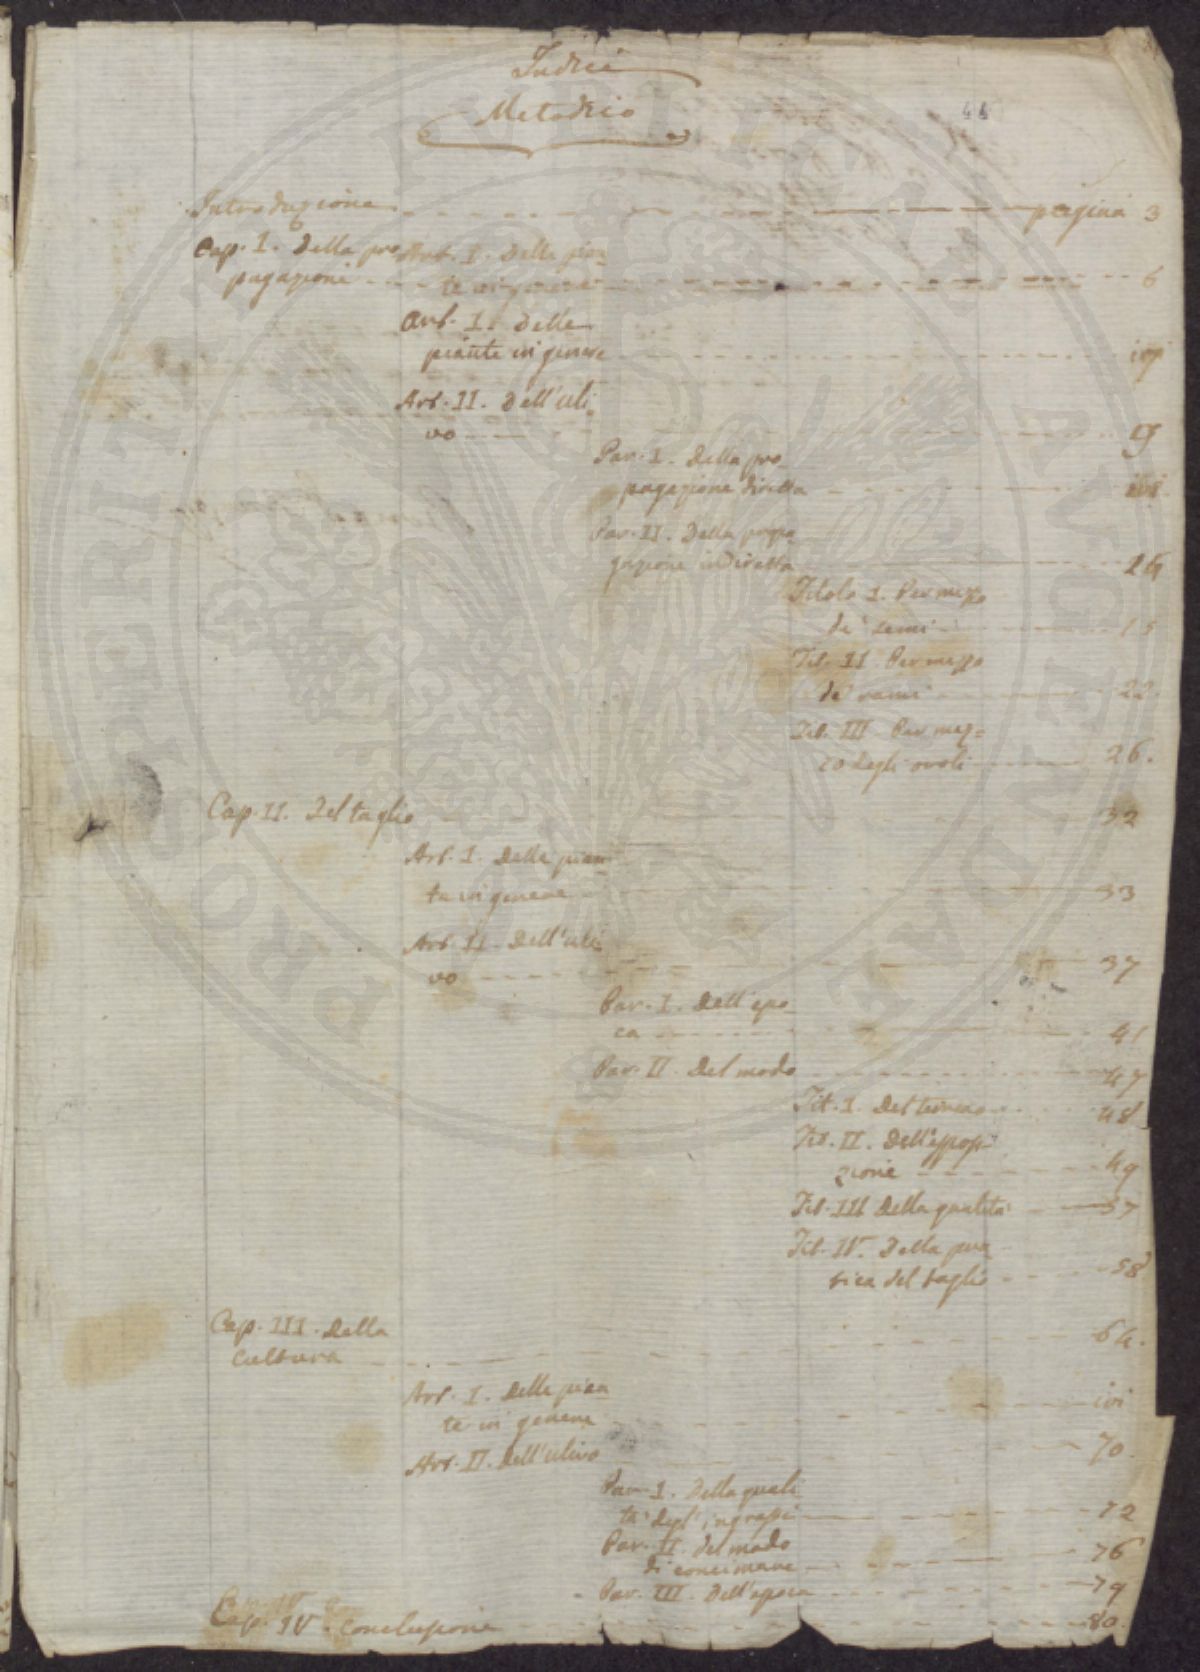 Indice
Metodico
44
Introduzione pagina 3
Cap. I. Della pro Art. I. Delle pian
pagazione te in genere 6
Art. I. Delle
piante in genere ivi
Art. II. Dell'uli
vo
Par. I. Della pro
pagazione diretta ivi
Par. II. Della propa
gazione indiretta
Titolo I. Per mezzo
de' semi 15
Tit. II. Per mezzo
de' rami 22.
Tit. III. Per mez=
zo degli ovoli 26.
Cap. II. Del taglio 32
Art. I. Delle pian
te in genere 33
Art. II. Dell'uli
vo 37
Par. I. Dell'epo
ca 41
Par. II. Del modo 47
Tit. I. Del terreno 48
Tit. II. Dell'esposi
zione 49
Tit. III. Della qualità 57
Tit. IV. Della pra
tica del taglio 58
Cap. III. Della 64.
Cultura
Art. I. Delle pian
te in genere ivi
Art. II. Dell'ulivo 70.
Par. I. Della quali
tà degl'ingrassi 72
Par. II. Del modo
di concimare 76
Par. III. Dell'epoca 79
Cap. IV. Conclusione 80.
PROSPERITATI PUBLICAE AVGENDAE